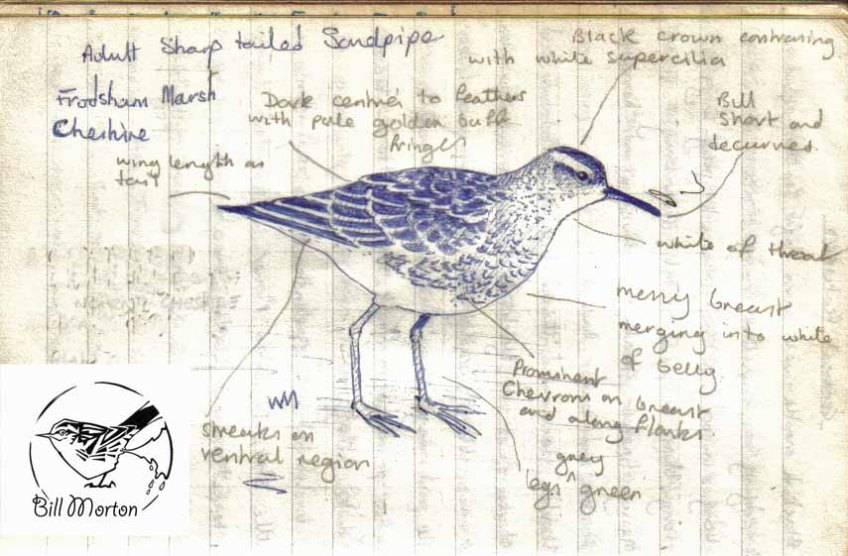 Adult Sharp tailed Sandpiper
Frodsham Marsh
Cheshire
Black crown contrasing
with white supercilia
Dark centres to feathers
with pale golden buff
fringes
Bill
Short and
decurved.
wing length as
tail
white of throat
messy breast
merging into white
of belly
Prominent
Chevrons on breast
and along flanks.
streaks on
ventral region
grey
legs ^ green
Bill Morton